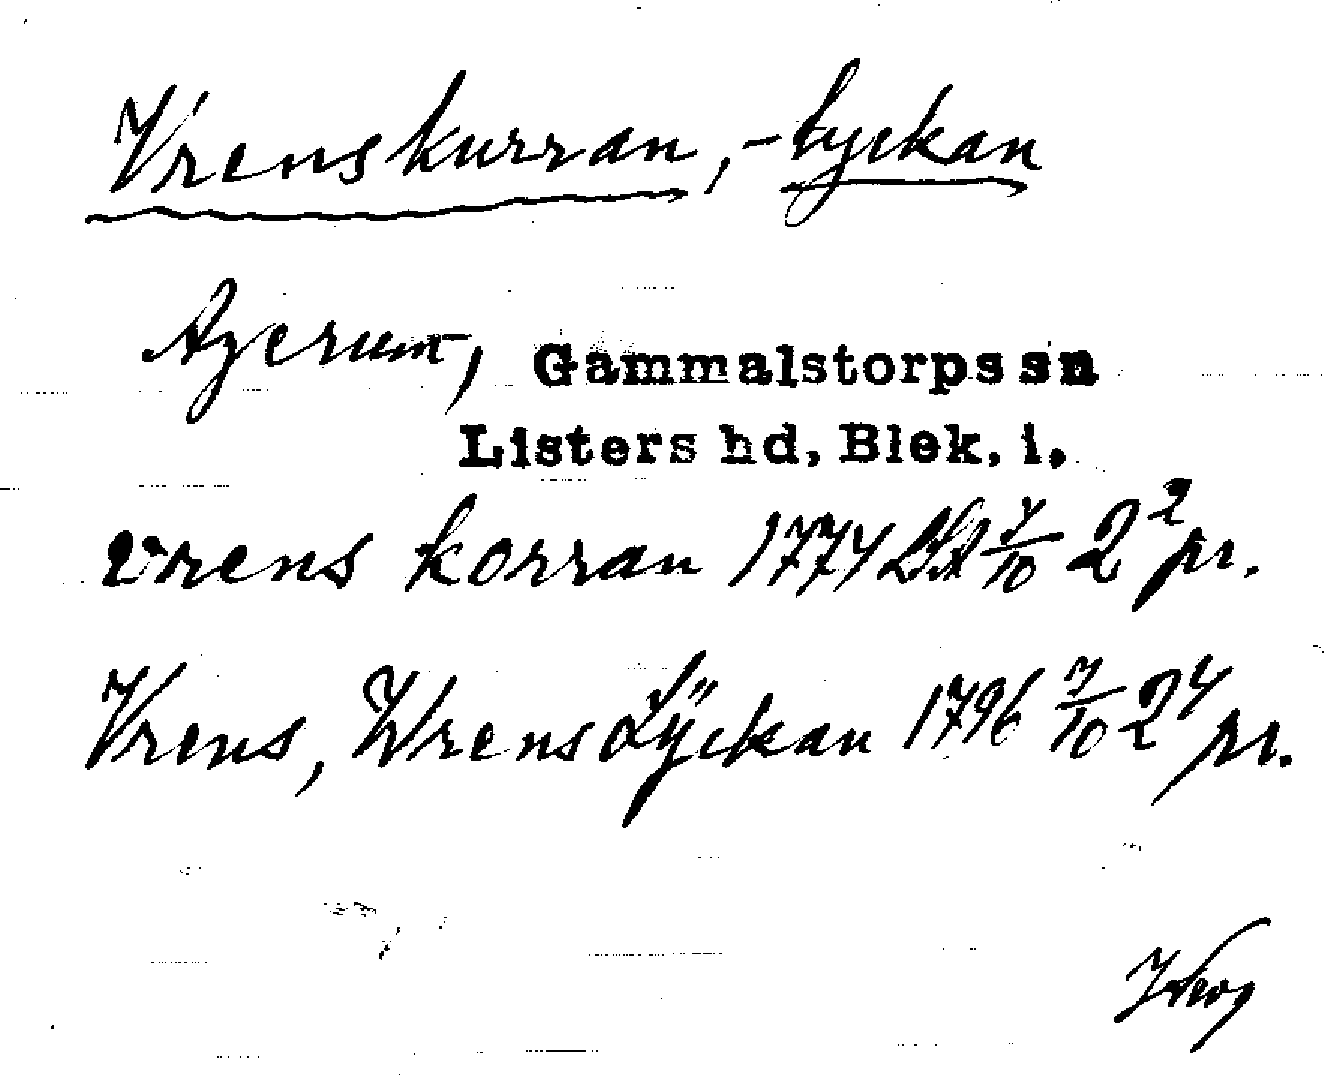 Vrenskurran, -lyckan
Agerum, Gammalstorps sn
Listers hd, Blek. l.
vrens korran 1774 LSA 7/10 2² pr.
Vrens, Wrens Lÿckan 1796 7/10 2⁴ pr.